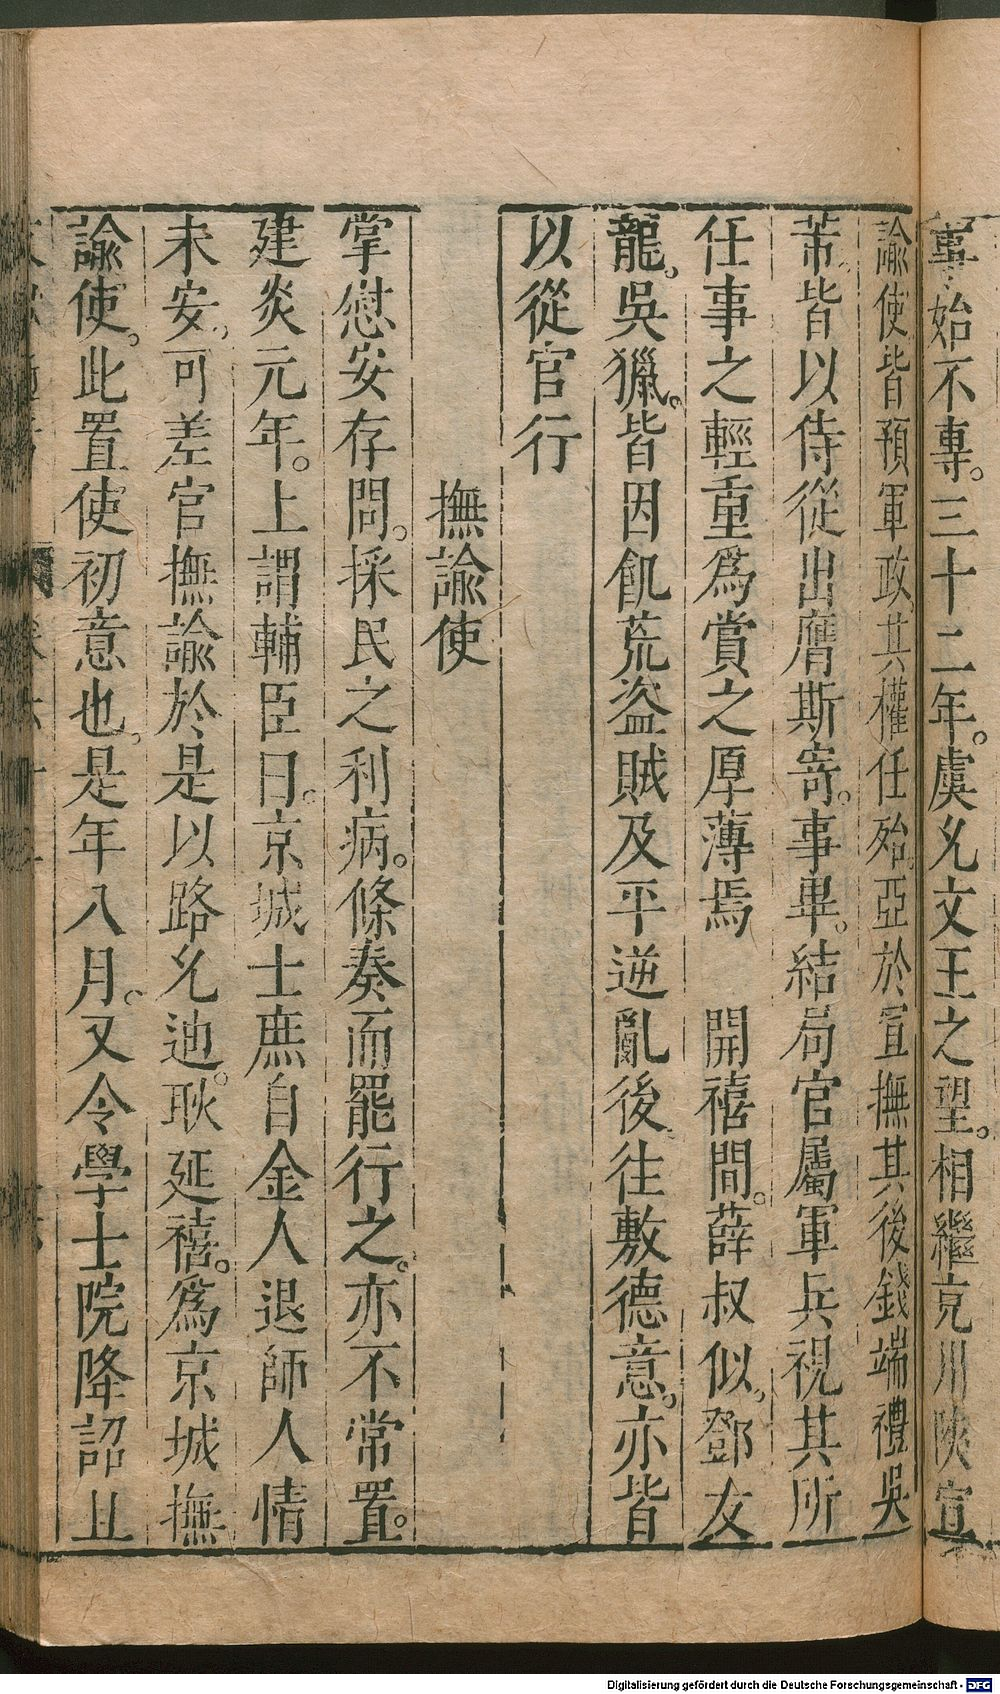 事始不專。三十二年。虞允文王之望。相繼充川陝宣
諭使皆預軍政。其權任殆亞於宣撫其後錢端禮吳
芾。皆以侍從出膺斯寄。事畢。結局官屬軍兵視其所
任事之輕重為賞之厚薄焉　開禧間。薛叔似。鄧友
龍。吳獵。皆因飢荒盜賊及平逆亂後。往敷德意。亦皆
以從官行
撫諭使
掌慰安存問。採民之利病。條奏而罷行之。亦不常置。
建炎元年。上謂輔臣曰。京城士庶自金人退師人情
未安。可差官撫諭於是以路允迪。耿延禧。為京城撫
諭使。此置使初意也。是年八月。又令學士院降詔且
Digitalisierung gefördert durch die Deutsche Forschungsgemeinschaft - DFG